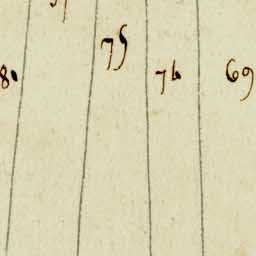 75
80 76 69